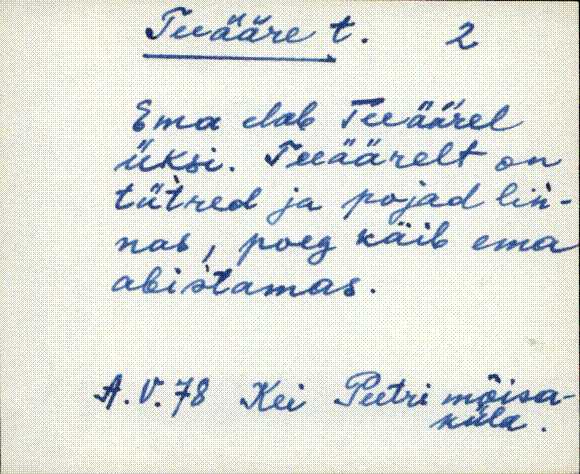 Teeääre t. 2
Ema elab Teeäärel
üksi. Teeäärelt on
tütred ja pojad lin-
nas, poeg käib ema
abistamas.
A.V.78 Kei Peetri mõisa-
küla.